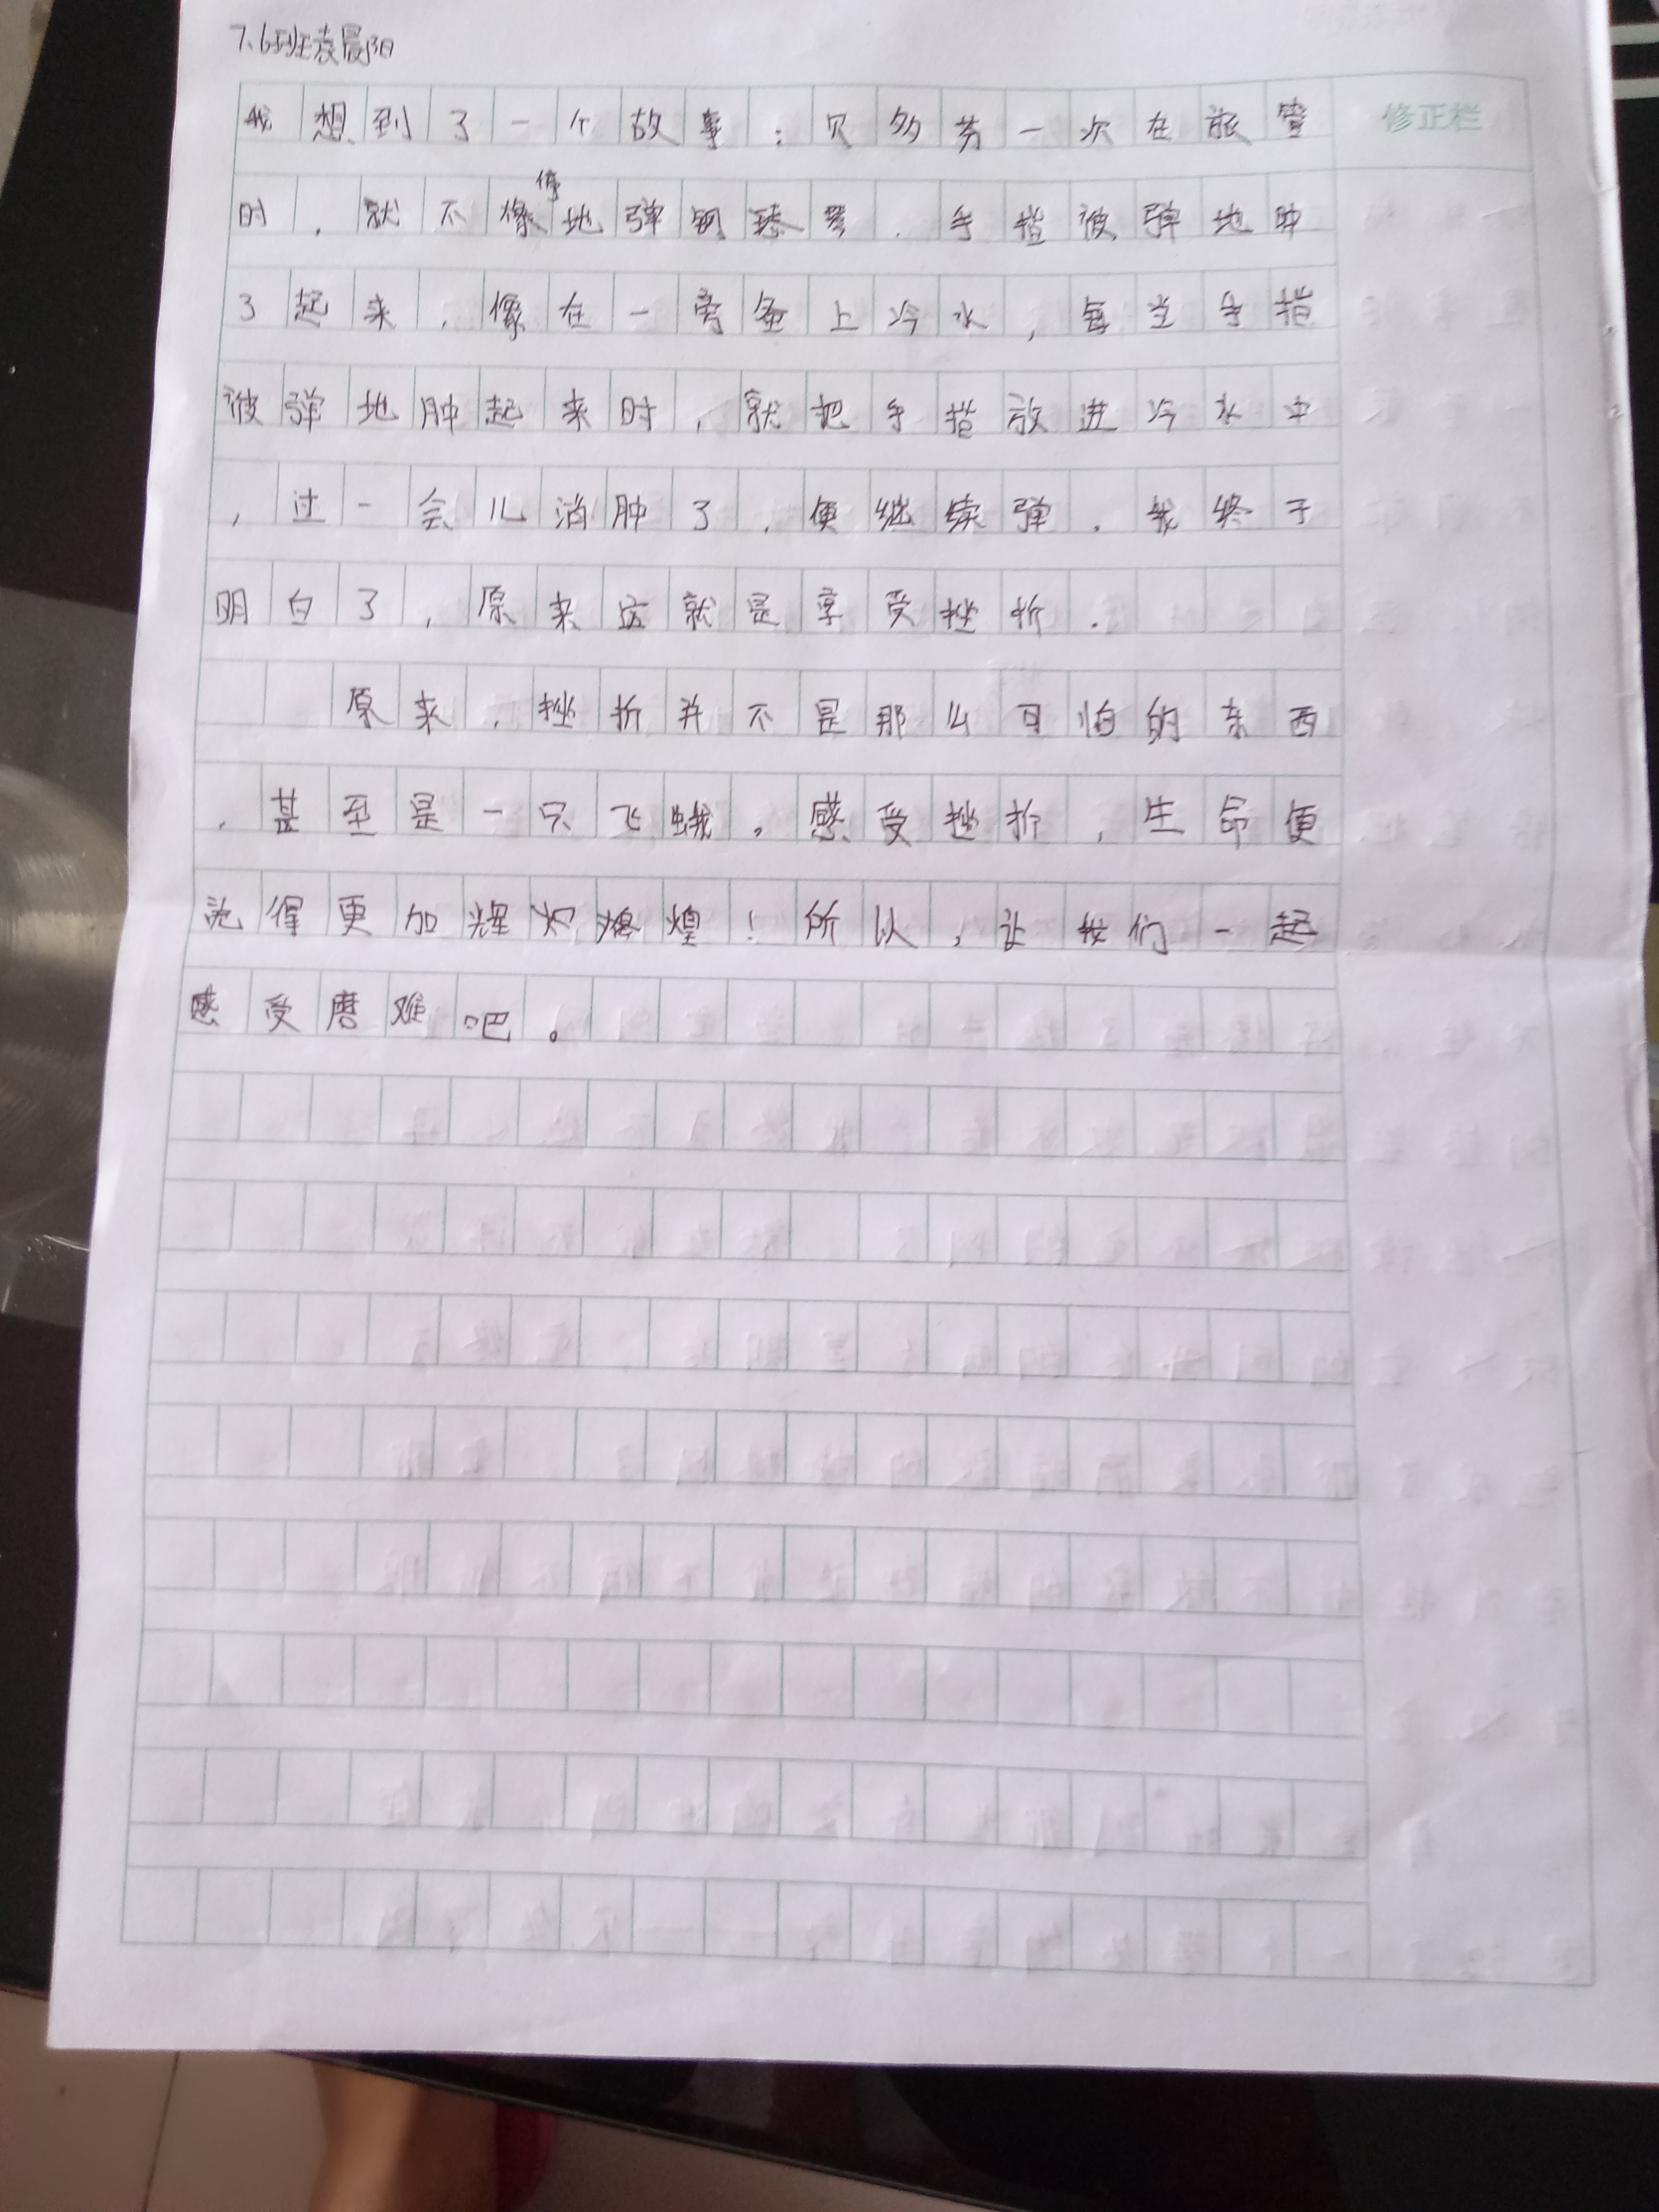 7.6班袁晨阳
修正栏
我想到了一个故事:贝多芬一次在旅馆
时,就不停地弹钢琴.手指被弹地肿
了起来,像在一旁备上冷水,每当手指
被弹地肿起来时,就把手指放进冷水中
,过一会儿消肿了,便继续弹.我终于
明白了,原来这就是享受挫折.
原来,挫折并不是那么可怕的东西
,甚至是一只飞蛾。感受挫折,生命便
说得更加辉煌!所以,让我们一起
感受磨难吧。